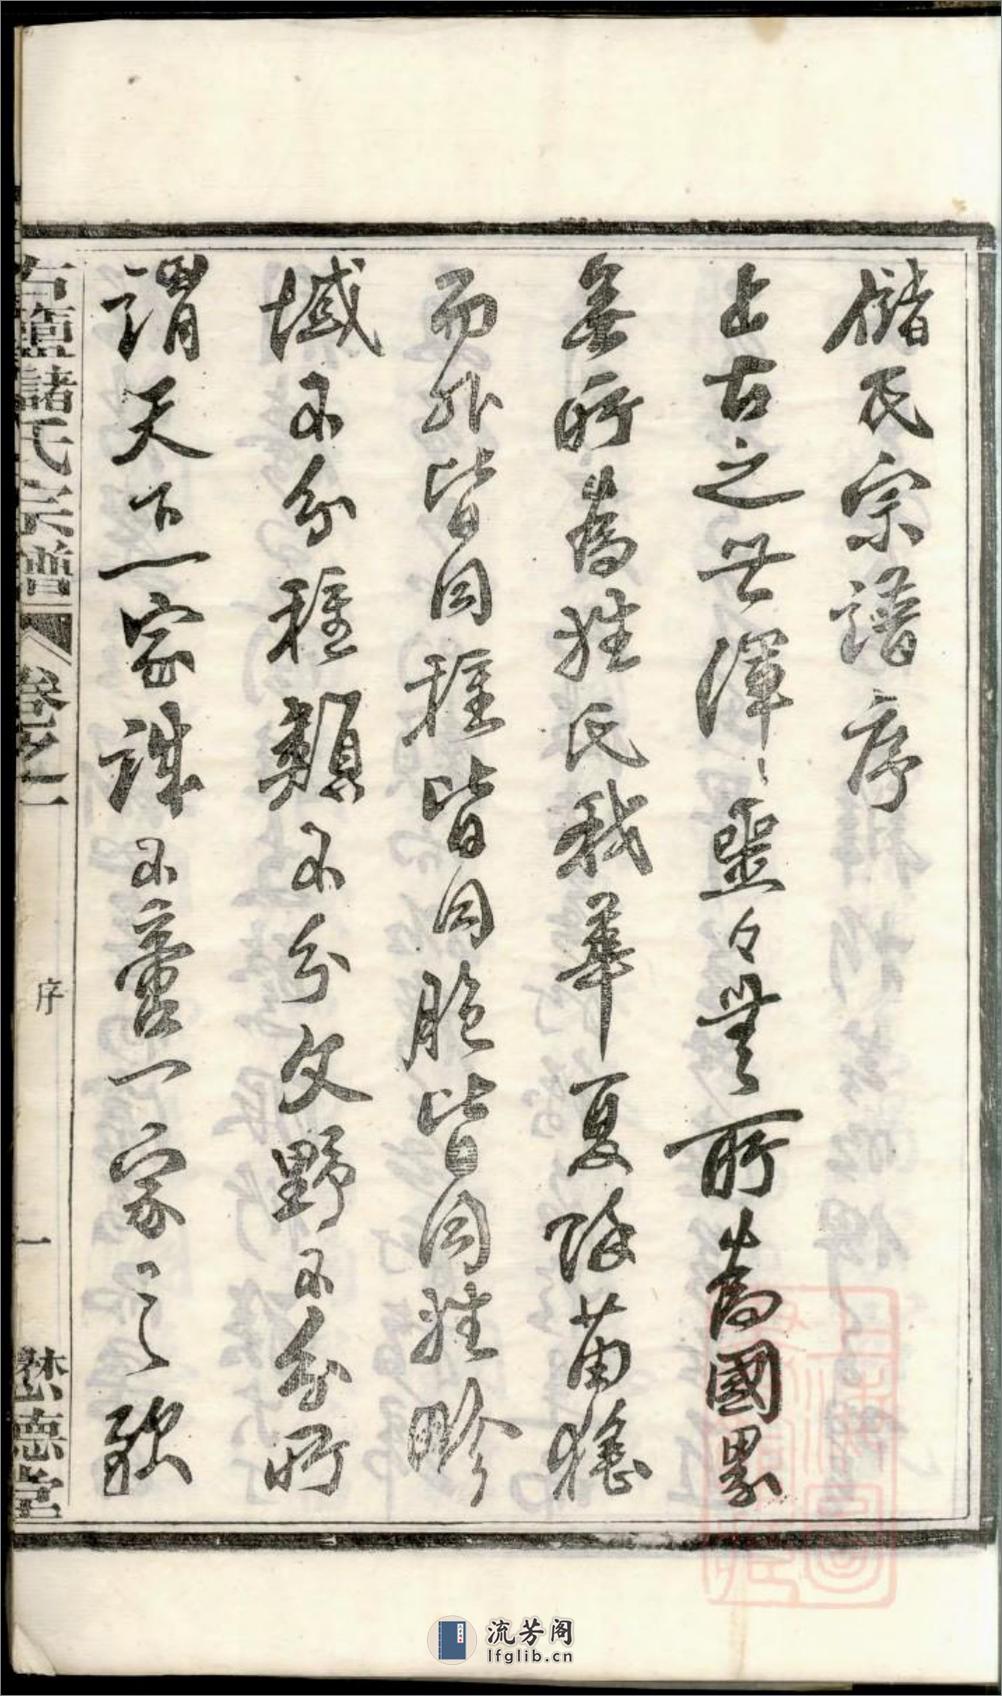 儲氏宗譜序
上古之世渾〻噩々無所爲國界
無所爲姓氏我華夏除苗猺
而外皆同種皆同胞皆同姓畛
域不分種類不分文野不分所
謂天下一家誠不啻一家之
氏宗譜 卷之一 序 一 懋德堂
流芳阁
lfglib.cn